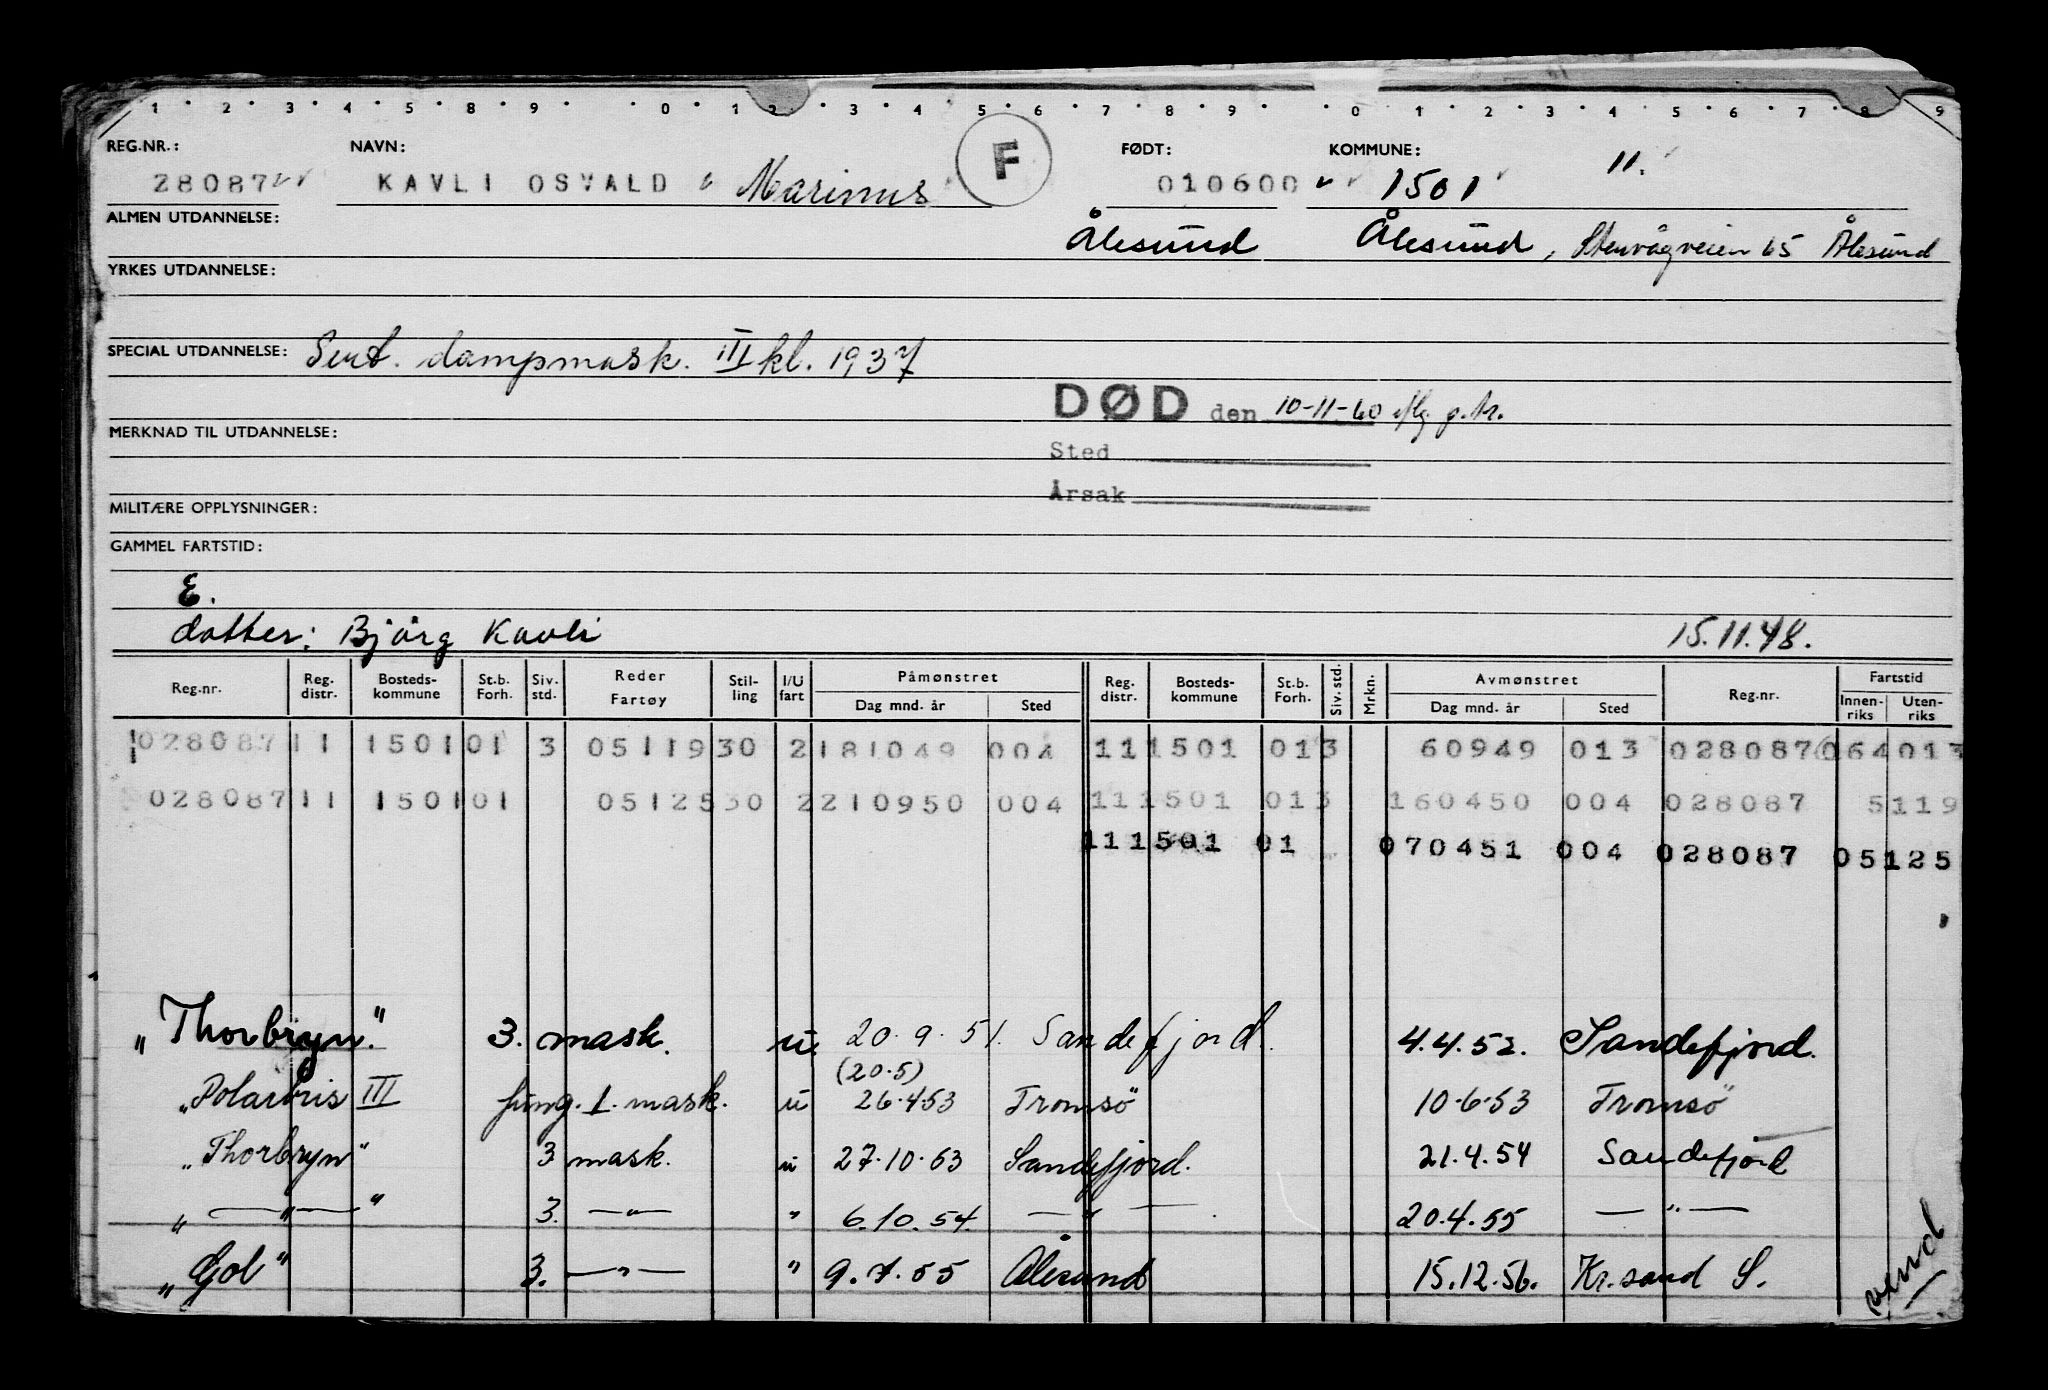 1 2 3 4 5 8 9 0 1 2 3 4 5 6 7 8 9 0 1 2 3 4 5 6 7 8 9
REG.NR.: NAVN: F FØDT: KOMMUNE: 11.
28087 KAVLI OSVALD Marinus 010600 1501
ALMEN UTDANNELSE: Ålesund Ålesund, Stenvågveien 65 Ålesund
YRKES UTDANNELSE:
SPECIAL UTDANNELSE: Sert. dampmask. III kl. 1937
DØD den 10-11-60
MERKNAD TIL UTDANNELSE:
Sted
Årsak
MILITÆRE OPPLYSNINGER:
GAMMEL FARTSTID:
E.
datter: Bjørg Kavli 15.11.48.
Reg.nr. Reg. distr. Bosteds- kommune St.b. Forh. Siv. std. Reder Fartøy Stil- ling I/U fart Påmønstret Dag mnd. år Sted Reg. distr. Bosteds- kommune St.b. Forh. Siv. std. Mrkn. Avmønstret Dag mnd. år Sted Reg.nr. Fartstid Innen- riks Uten- riks
028087 11 1501 01 3 05119 30 2 181049 004 11 1501 01 3 60949 013 028087 064 013
028087 11 1501 01 05125 30 2 210950 004 11 1501 01 3 160450 004 028087 5119
11 1501 01 070451 004 028087 05125
"Thorbryn." 3. mask. u. 20.9.51. Sandefjord. 4.4.52. Sandefjord.
(20.5)
"Polarbris III fung. 1. mask. u 26.4.53 Tromsö 10.6.53 Tromsö
"Thorbryn" 3 mask. u 27.10.53 Sandefjord. 21.4.54 Sandefjord
" —"— " 3. —"— " 6.10.54 —"— 20.4.55 —"—
"Gol" 3. —"— " 9.7.55 Ålesund 15.12.56. Kr.sand S.
vend